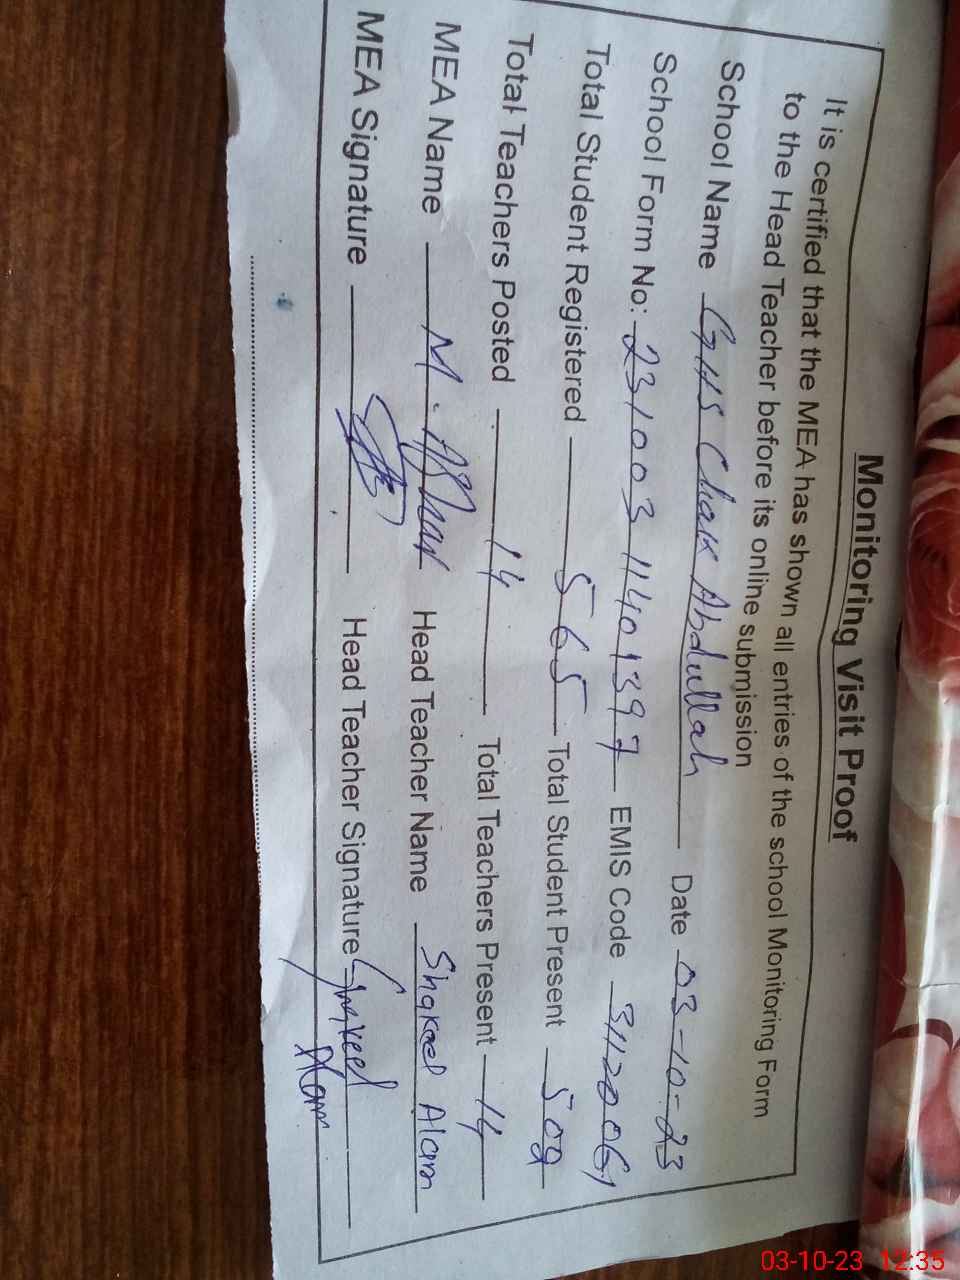 Monitoring Visit Proof
It is certified that the MEA has shown all entries of the school Monitoring Form
to the Head Teacher before its online submission
School Name GHS Chak Abdullah Date 03-10-23
School Form No: 23100311401397 EMIS Code 31120061
Total Student Registered 565 Total Student Present 502
Total Teachers Posted 14 Total Teachers Present 14
MEA Name M. Head Teacher Name Shakeel Alam
MEA Signature Head Teacher Signature Shakeel
Alam
03-10-23 12:35